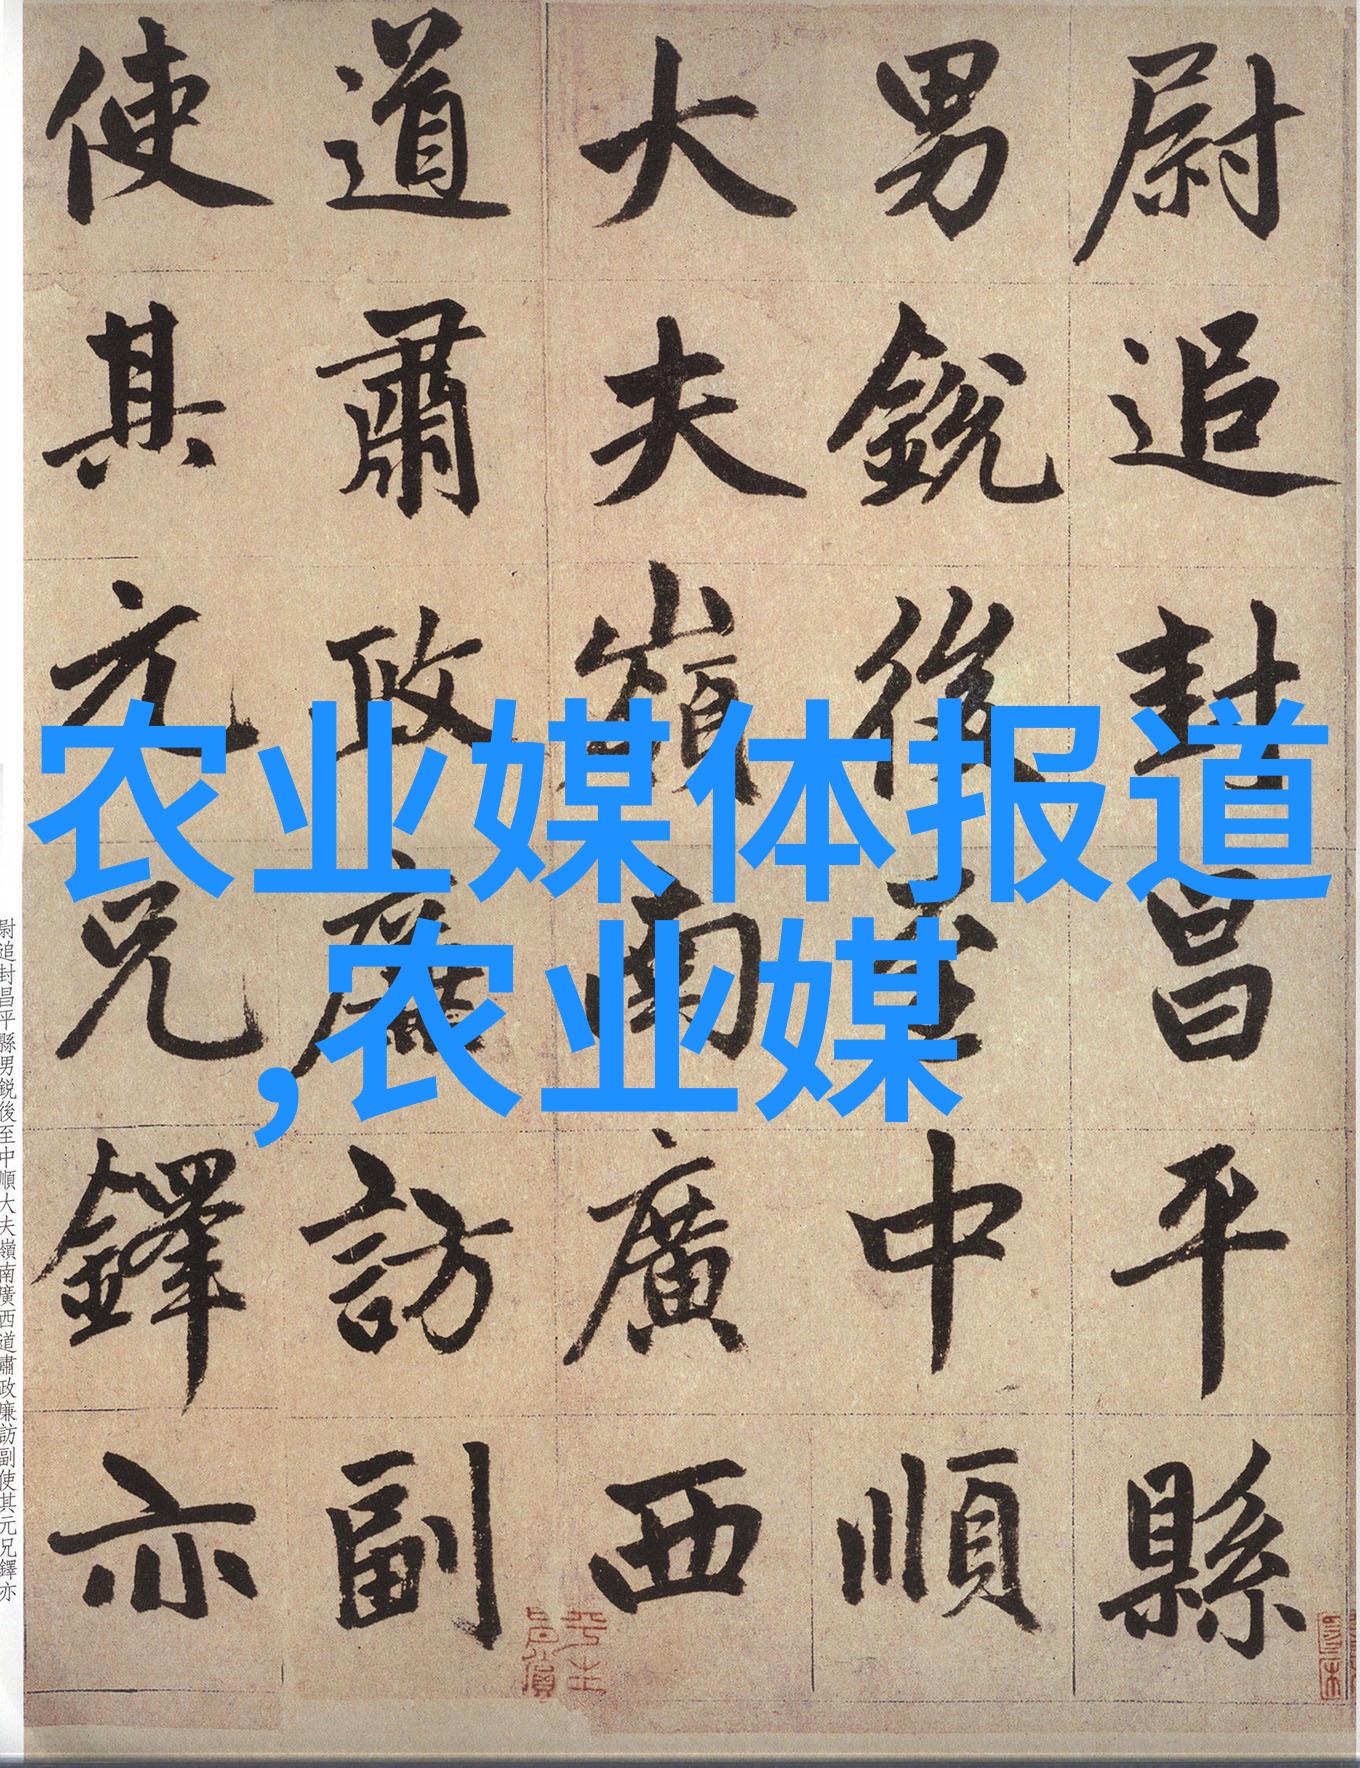 尉追封昌平縣
男銳後至中順
大夫嶺南廣西
道肅政廉訪副
使其元兄鐸亦
农业媒体报道
,农业媒
尉追封昌平縣男銳後至中順大夫嶺南廣西道肅政廉訪副使其元兄鐸亦